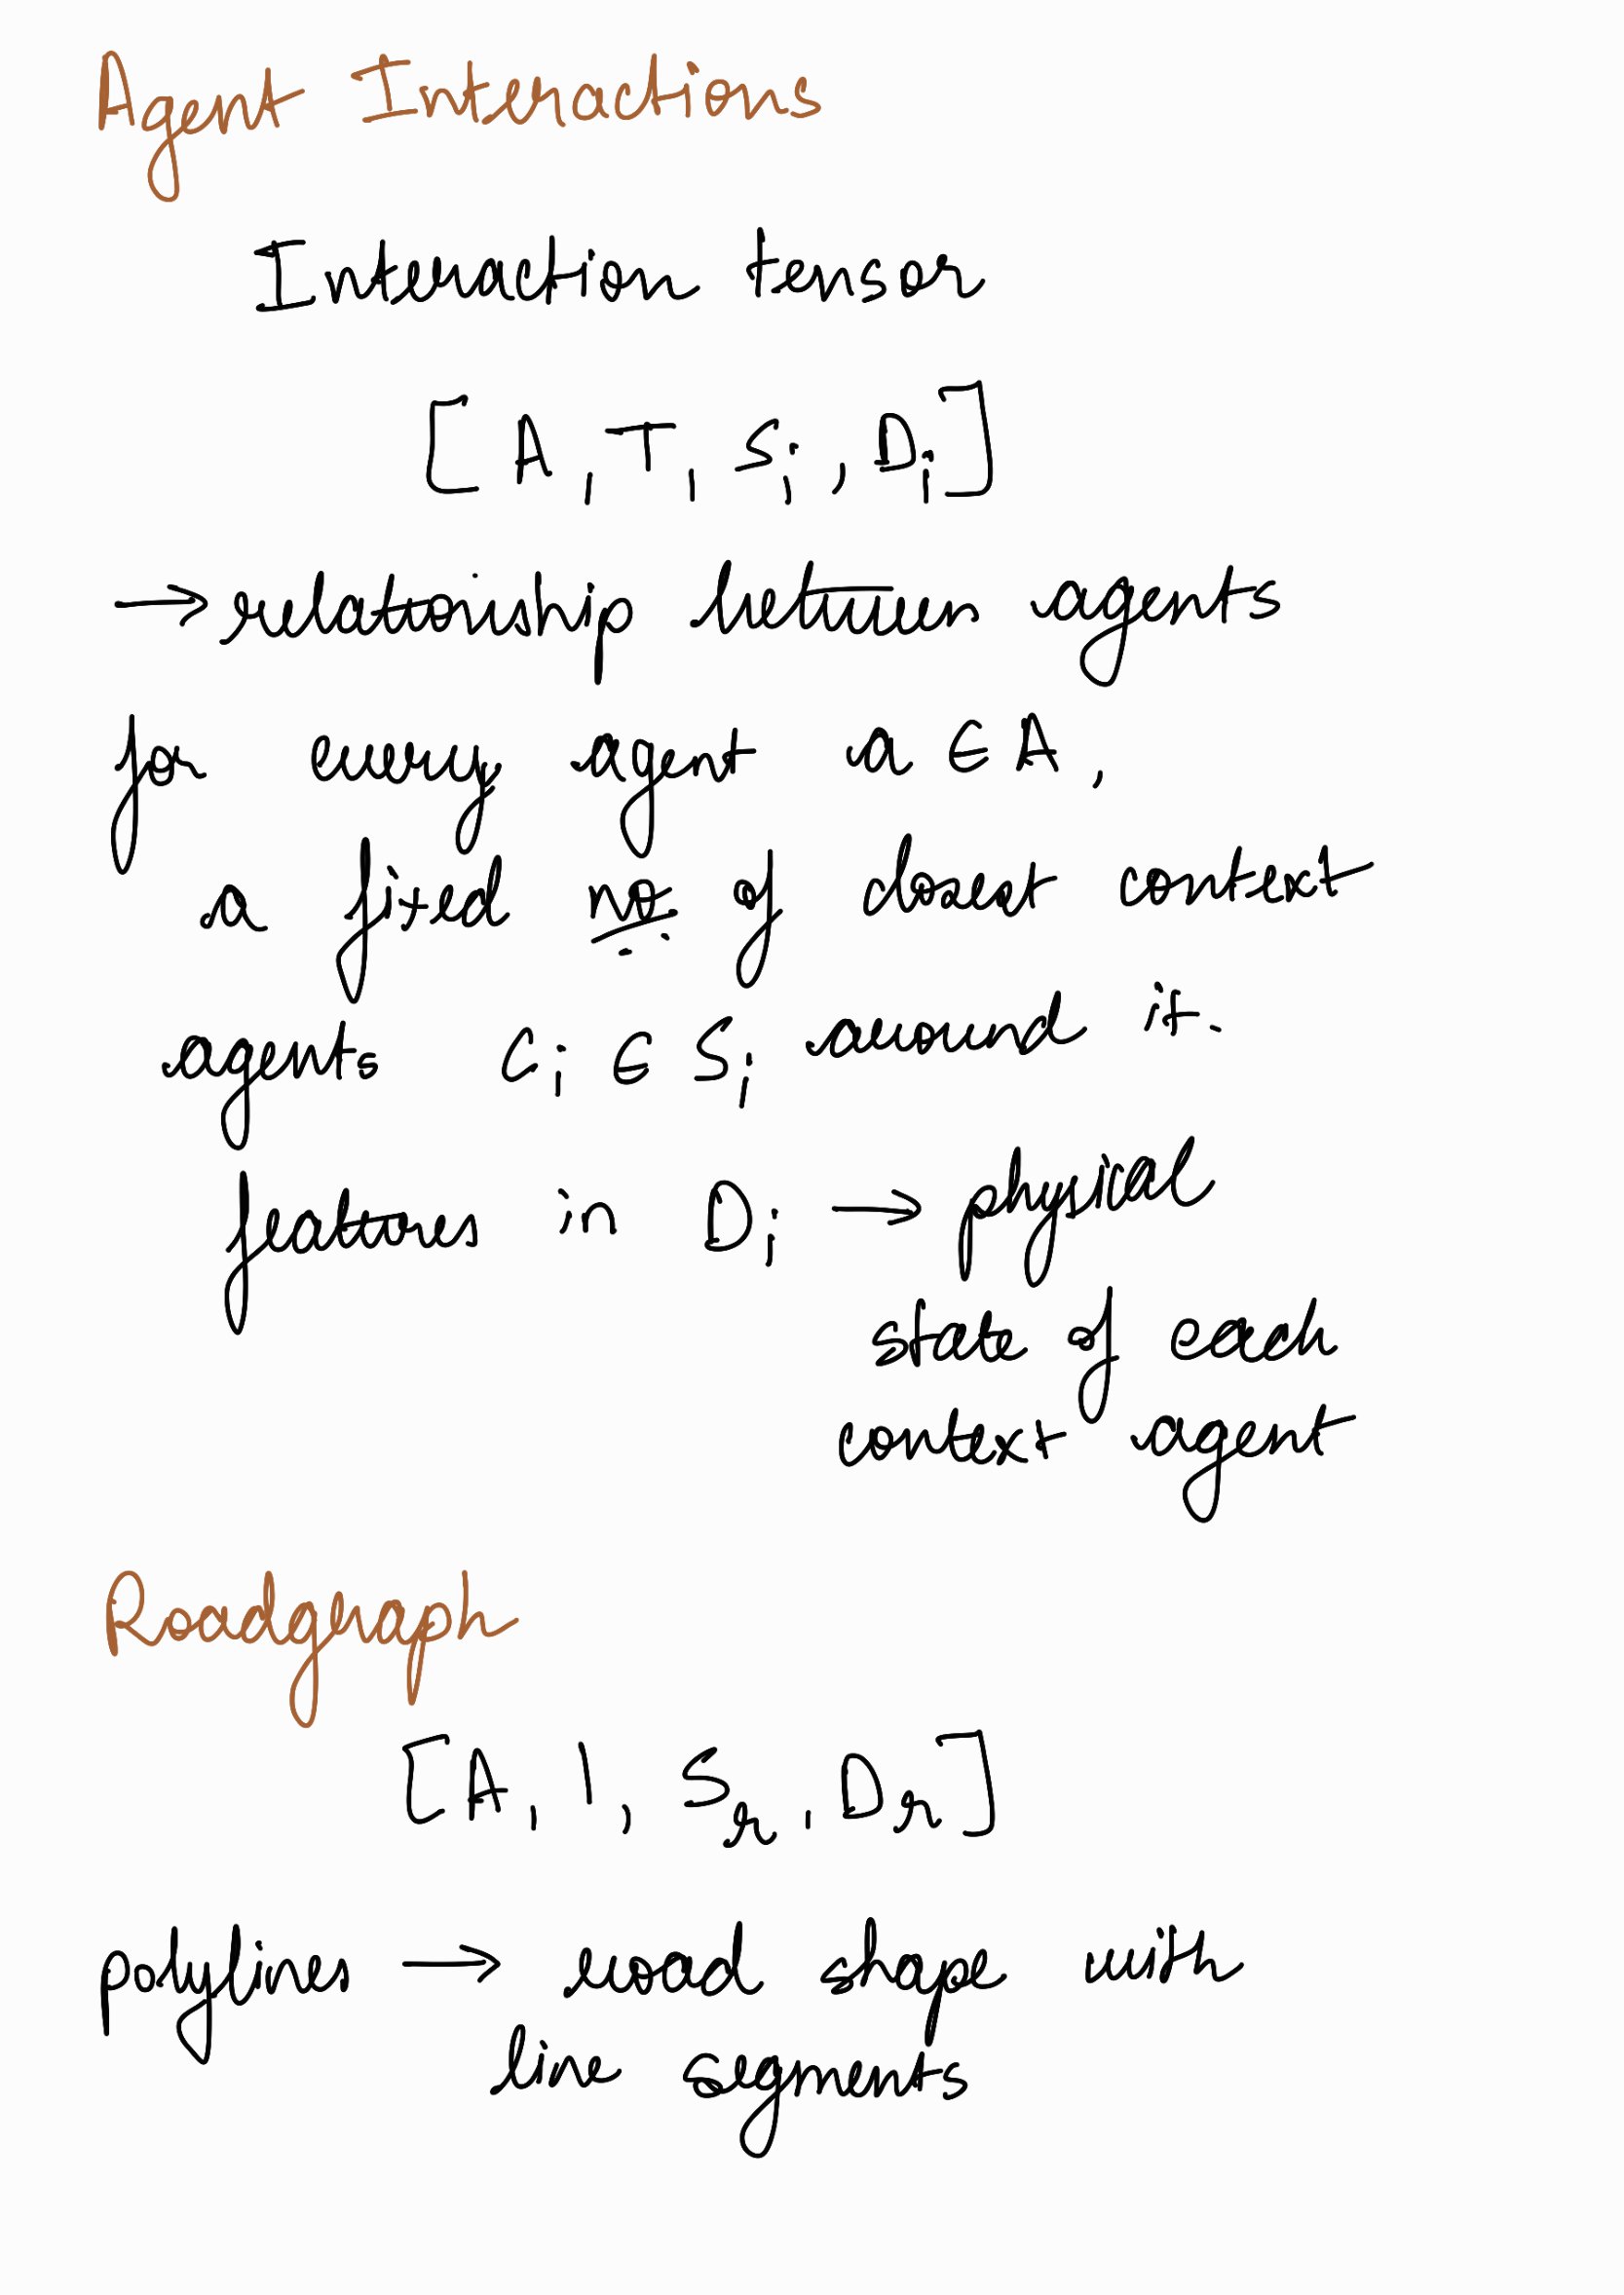 Agent Interactions
Interaction tensor
[A, T, Si, Di]
→ relationship between agents
for every agent a ∈ A,
a fixed no of closest context
agents ci ∈ Si around it.
features in Di → physical
state of each
context agent
Roadgraph
[A, 1, Sr, Dr]
polylines → road shape with
line segments